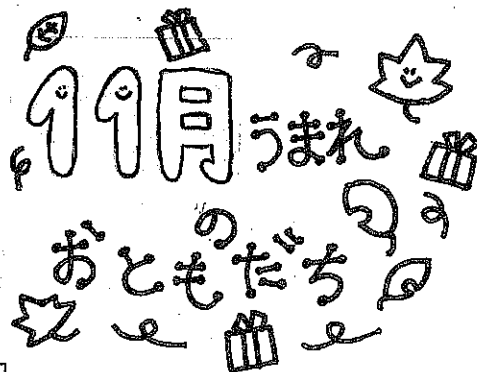 11月うまれ
の
おともだち